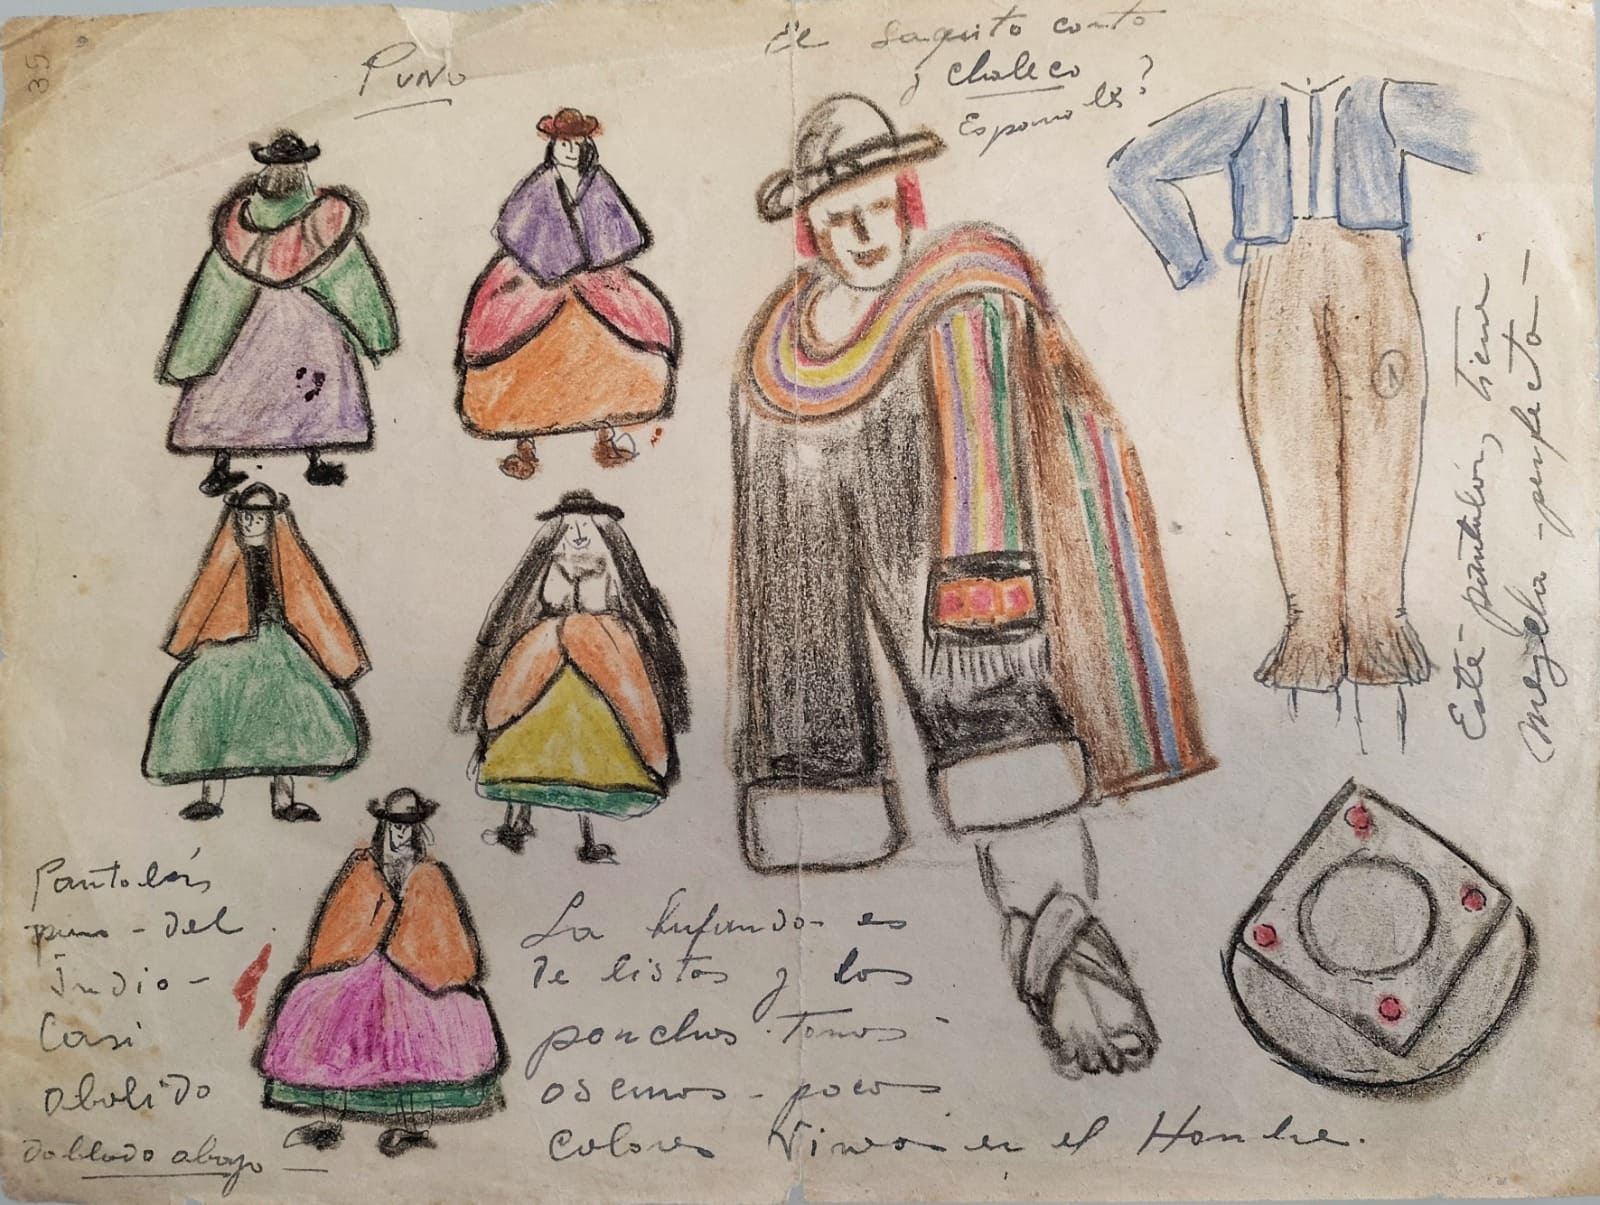 35
PUNO
El saquito corto
y chaleco
Españoles?
Este pantalón, tiene
mezcla - perfecta -
Pantalón
puno - del
Indio -
Casi
abolido
doblado abajo -
La bufanda es
de listas y los
ponchos. Tonos -
oscuros - pocos
colores vivos en el Hombre.